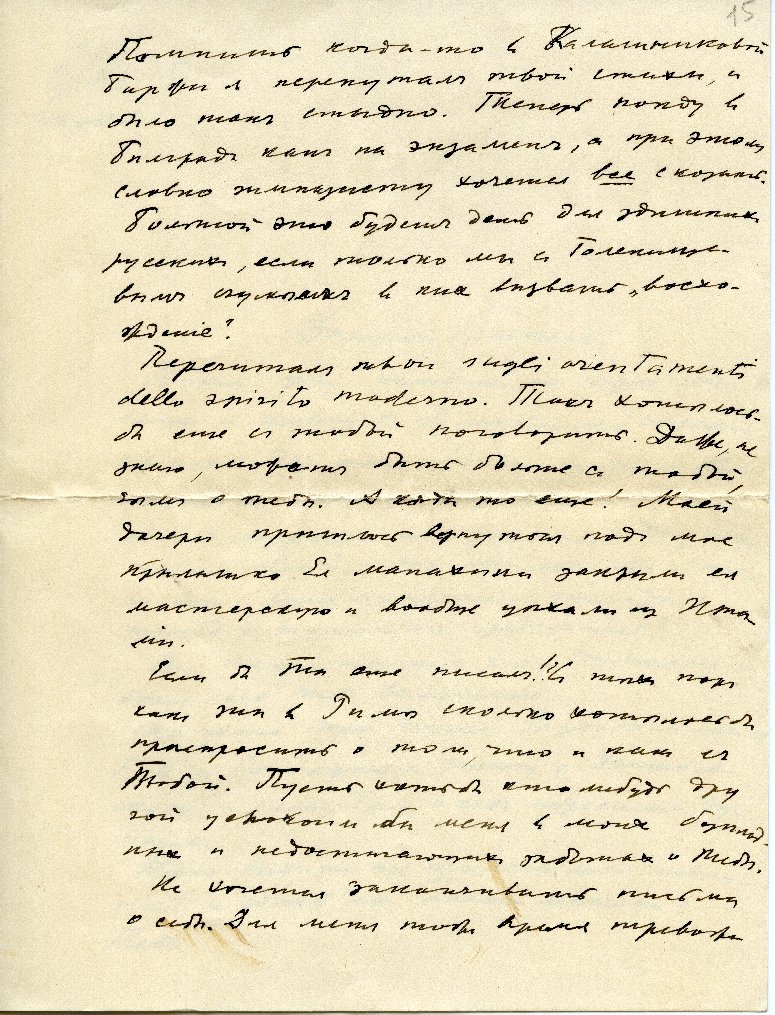 15
Помнишь когда-то в Калашниковой
бирже я перепуталъ твои стихи, и
было такъ стыдно. Теперь поѣду в
Бѣлградъ какъ на экзаменъ, а при этомъ
словно гимназисту хочется все сказать.
Большой это будетъ день для здешних
русских, если только мы с Голенище-
вымъ в них вызвать „восхо-
ждение".
Перечиталъ твои sugli orientamenti
dello spirito moderno. Такъ хотѣлось-
бъ еще с тобой поговорить. Даже, не
знаю, можетъ быть больше с тобой,
чѣмъ о тебѣ. А когда то еще! Моей
дочери пришлось вернуться подъ мое
крылышко. Ея закрыли ея
мастерскую и вообще уѣхали из Ита
ліи.
Если бъ Ты еще писалъ!! С тѣхъ поръ
какъ ты в Римѣ сколько хотѣлось бъ
проспросить о том, что и как с
Тобой. Пусть хотя бъ кто нибудь дру
гой успокоил бы меня в моих бунтлд-
ных и недостигающих заботах о Тебѣ.
Не хочется заканчивать письма
о себѣ. Для меня тоже время тревожн